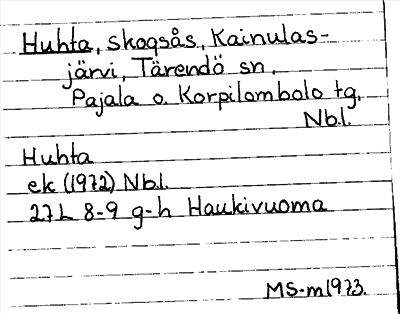 Huhta, skogsås, Kainulas-
järvi, Tärendö sn,
Pajala o. Korpilombolo tg,
Nb.l.
Huhta
ek (1972) Nb.l.
27L 8-9 g-h Haukivuoma
MS-m1973.